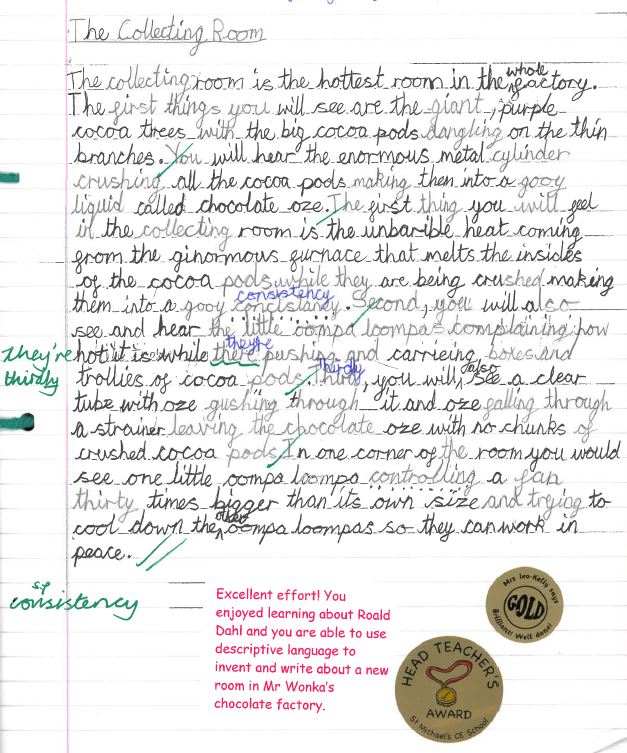 The Collecting Room
The collecting room is the hottest room in the whole factory.
The first things you will see are the giant, purple
cocoa trees with the big cocoa pods dangling on the thin
branches. You will hear the enormous metal cylinder
crushing all the cocoa pods making then into a gooy
liquid called chocolate oze. The first thing you will feel
in the collecting room is the unbarible heat coming
from the ginormous furnace that melts the insides
of the cocoa pods while they are being crushed making
consistency
them into a gooy concistancy. Second, you will also
see and hear the little oompa loompas complaining how
they're
They're hot it is while there pushing and carrieing boxes and
thirdly
thirdly trollies of cocoa pods. Third, you will also see a clear
tube with oze gushing through it and oze falling through
a strainer leaving the chocolate oze with no chunks of
crushed cocoa pods. In one corner of the room you would
see one little oompa loompa controlling a fan
thirty times bigger than its own size and trying to
cool down the other oompa loompas so they can work in
peace.
sp
consistency
Excellent effort! You
enjoyed learning about Roald
Dahl and you are able to use
descriptive language to
invent and write about a new
room in Mr Wonka's
chocolate factory.
Mrs leo-Kelly says
GOLD
Brilliant! Well done!
HEAD TEACHER'S
AWARD
St Michael's CE School